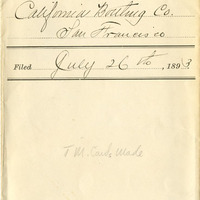 California Bottling Co.
San Francisco
Filed July 26th, 1893
T.M.